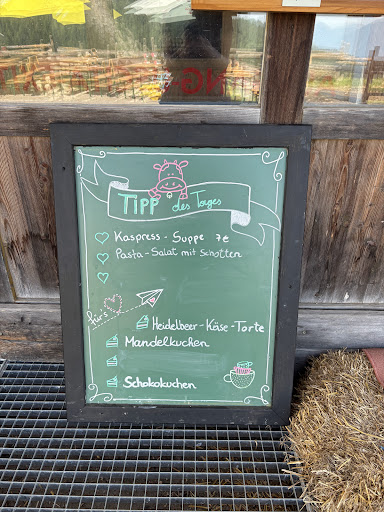 TIPP des Tages
Kaspress - Suppe 7€
Pasta - Salat mit Schotten
für's
Heidelbeer - Käse - Torte
Mandelkuchen
Schokokuchen